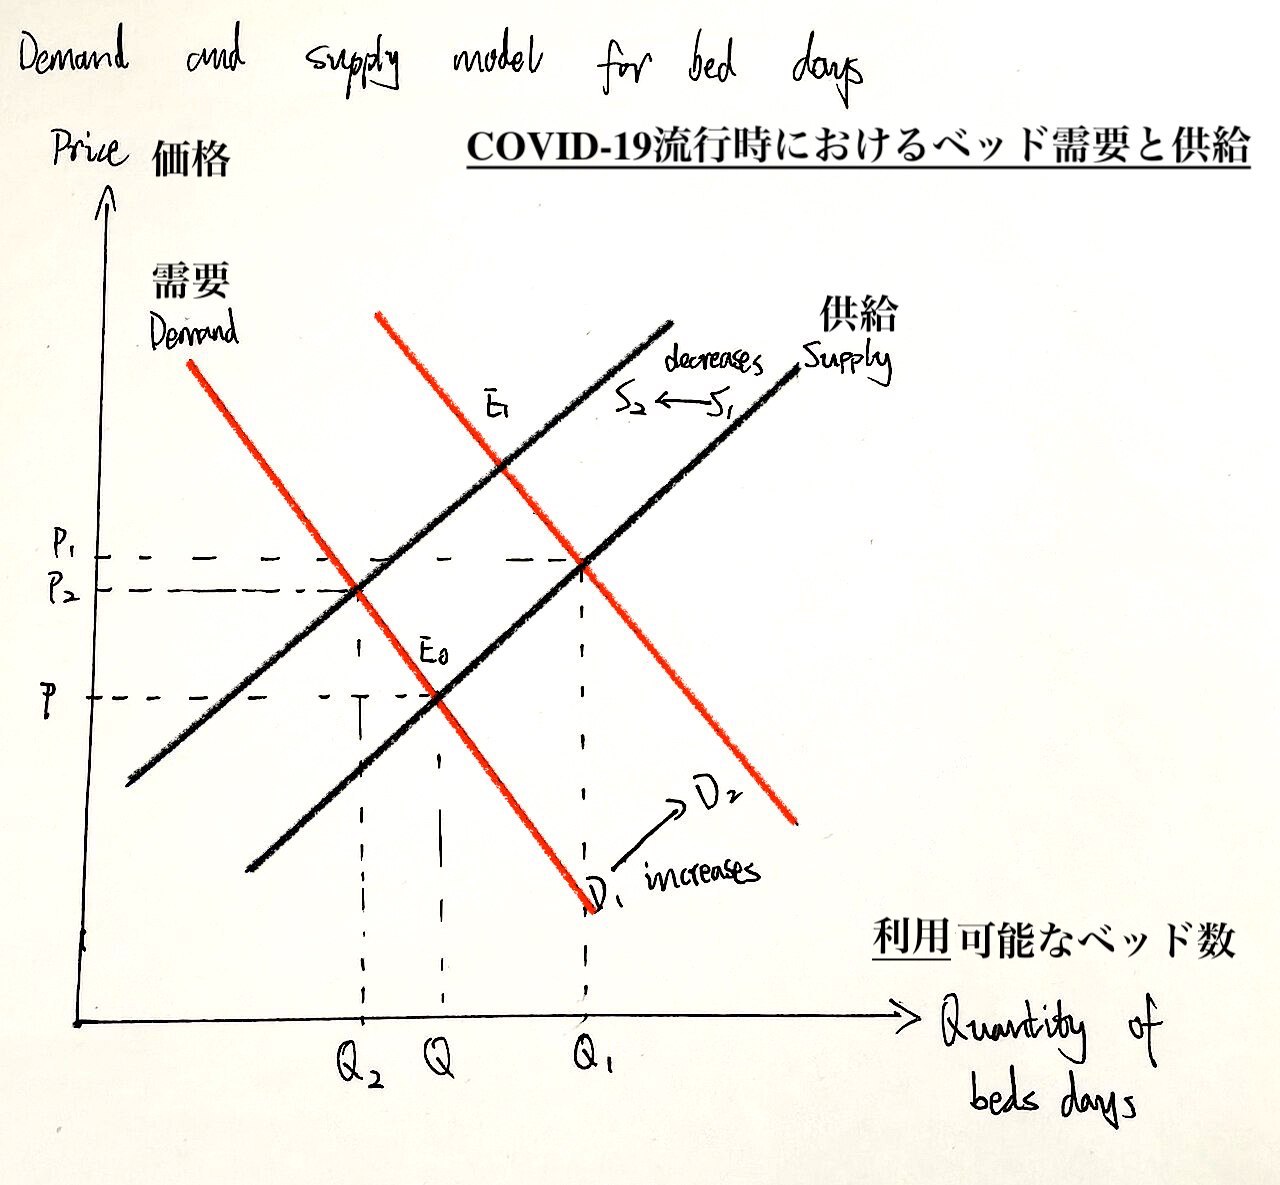 Demand and supply model for bed days
COVID-19流行時におけるベッド需要と供給
Price 価格
需要
Demand
供給
Supply
decreases
S₂ ← S₁
E₁
P₁
P₂
E₀
P
D₂
D₁ increases
利用可能なベッド数
Q₂ Q Q₁
Quantity of
beds days